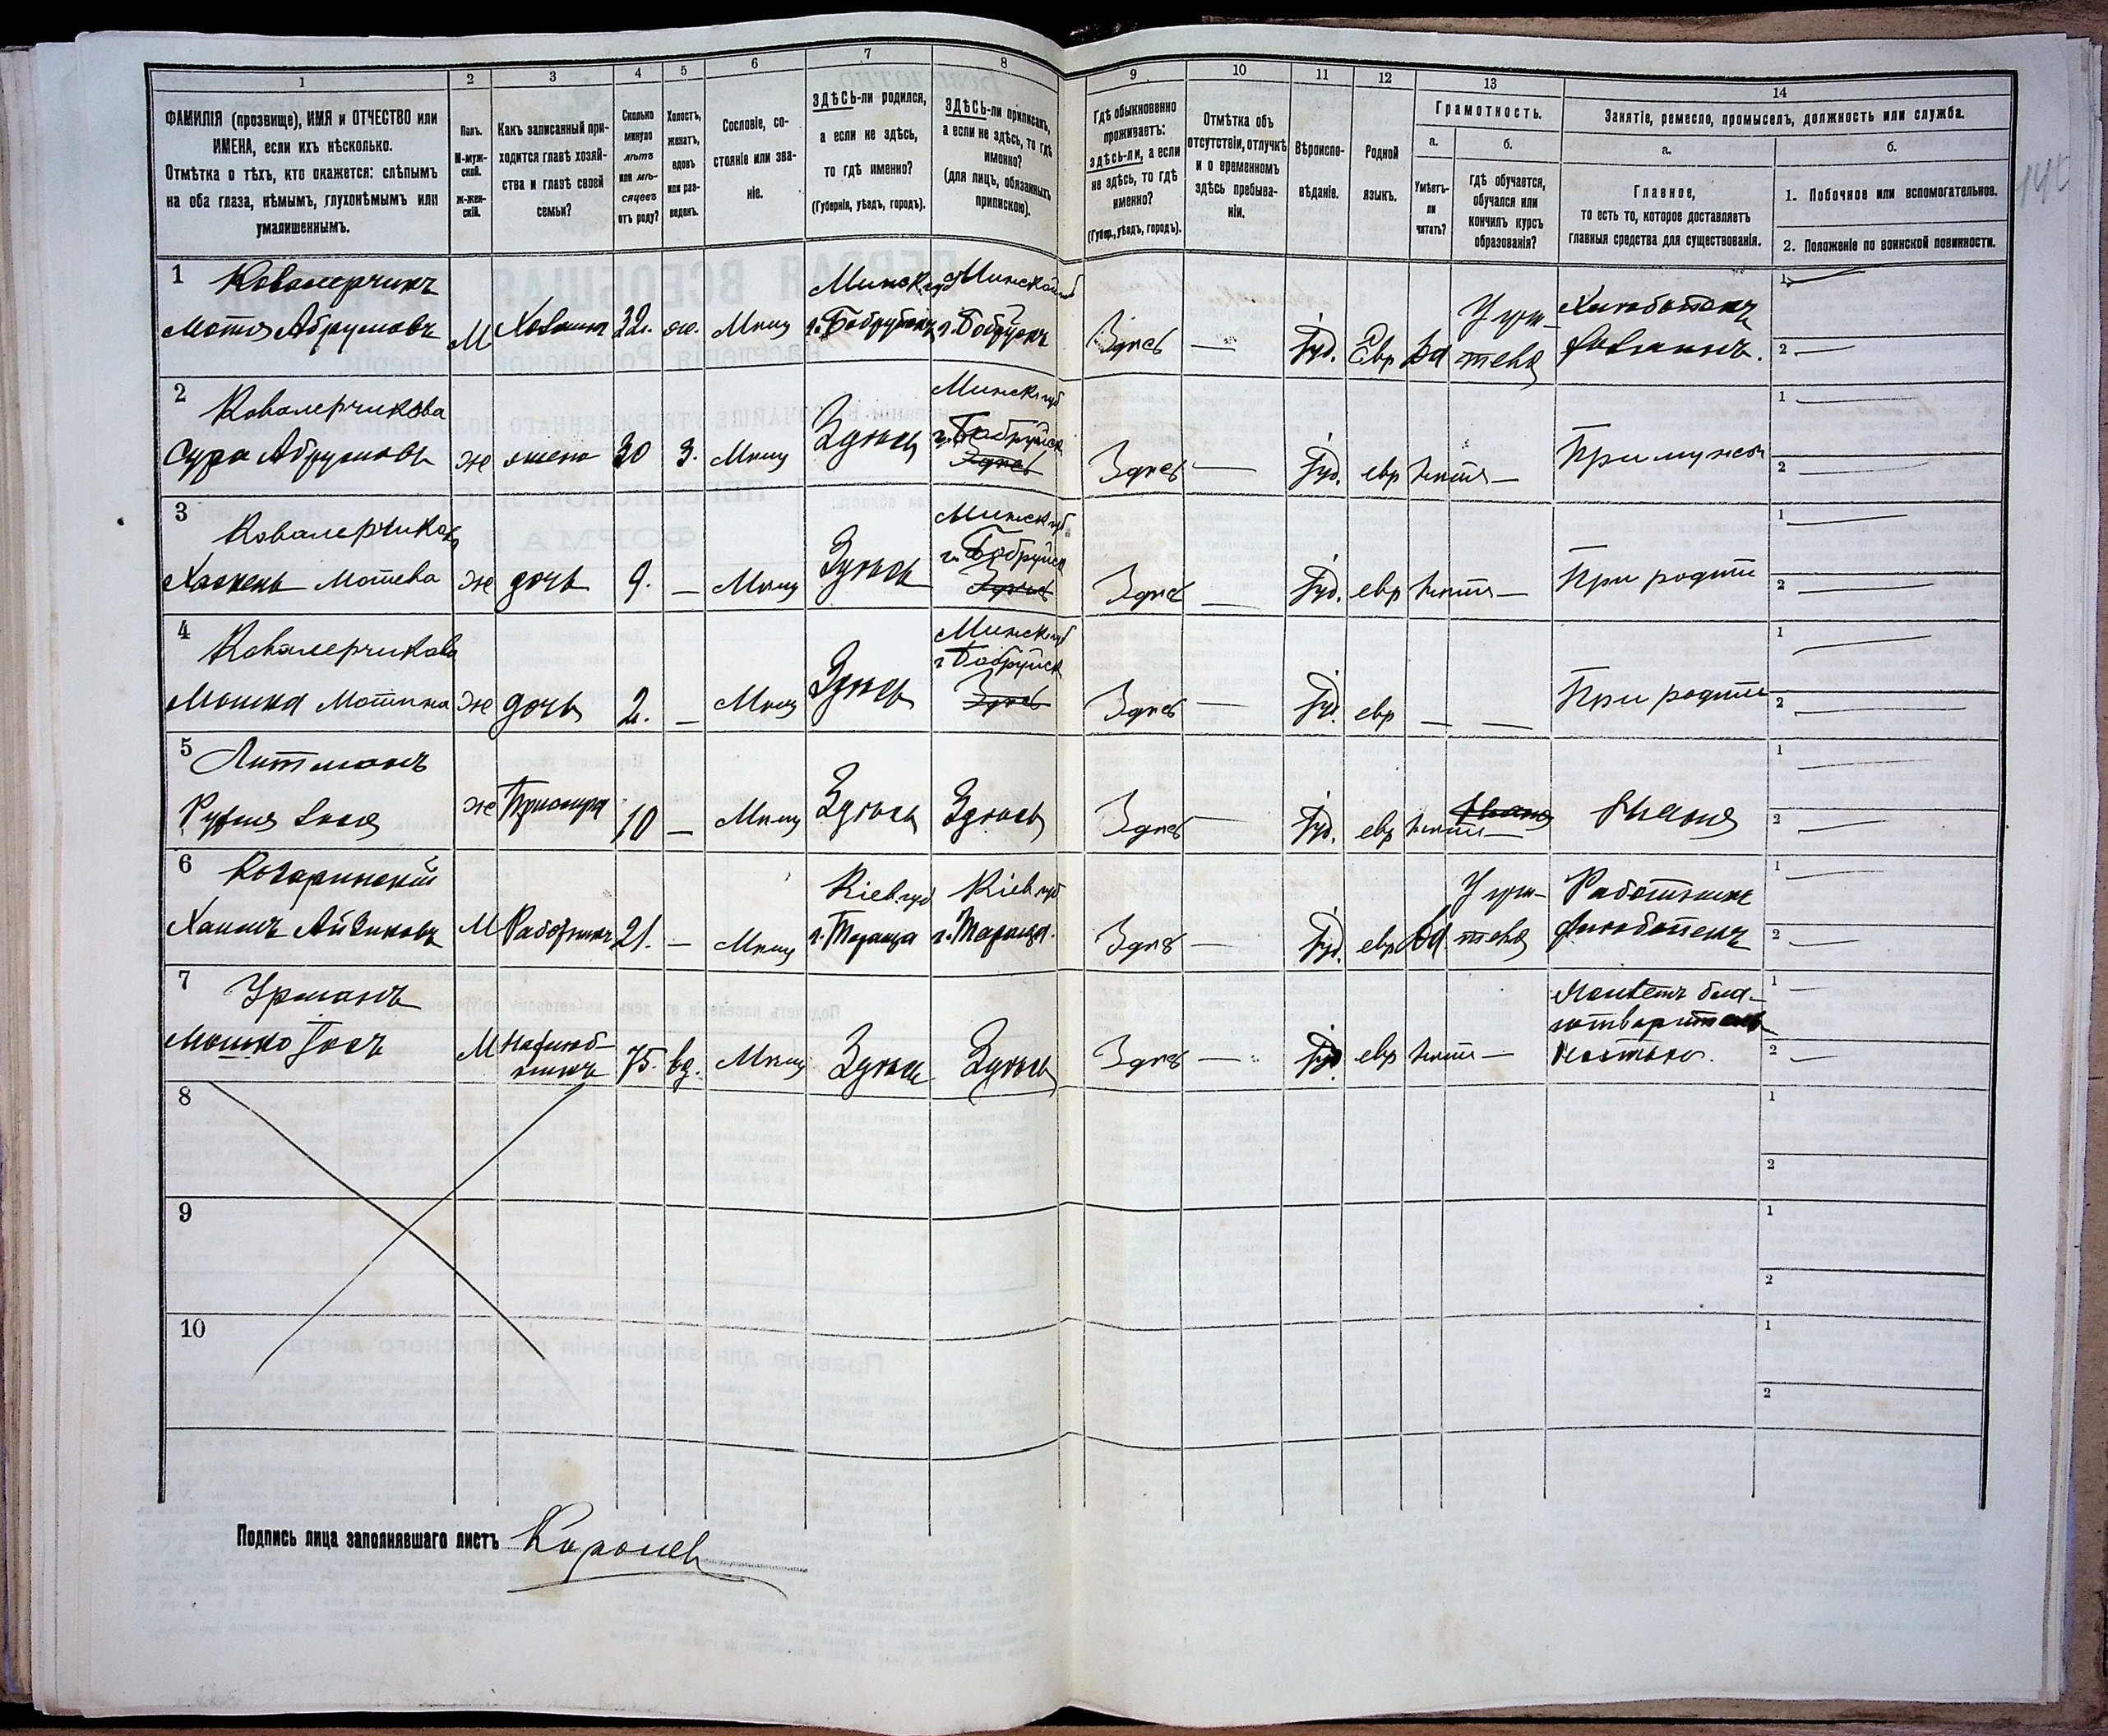 1
ФАМИЛІЯ (прозвище), ИМЯ и ОТЧЕСТВО или
ИМЕНА, если ихъ нѣсколько.
Отмѣтка о тѣхъ, кто окажется: слѣпымъ
на оба глаза, нѣмымъ, глухонѣмымъ или
умалишеннымъ.
2
Полъ.
М-муж-
ской.
Ж-жен-
скій.
3
Какъ записанный при-
ходится главѣ хозяй-
ства и главѣ своей
семьи?
4
Сколько
минуло
лѣтъ
или мѣ-
сяцевъ
отъ роду?
5
Холостъ,
женатъ,
вдовъ
или раз-
веденъ.
6
Сословіе, со-
стояніе или зва-
ніе.
7
ЗДѢСЬ-ли родился,
а если не здѣсь,
то гдѣ именно?
(Губернія, уѣздъ, городъ).
8
ЗДѢСЬ-ли приписанъ,
а если не здѣсь, то гдѣ
именно?
(для лицъ, обязанныхъ
припискою).
9
Гдѣ обыкновенно
проживаетъ:
здѣсь-ли, а если
не здѣсь, то гдѣ
именно?
(Губер., уѣздъ, городъ).
10
Отмѣтка объ
отсутствіи, отлучкѣ
и о временномъ
здѣсь пребыва-
ніи.
11
Вѣроиспо-
вѣданіе.
12
Родной
языкъ.
13
Грамотность.
а.
Умѣетъ-
ли
читать?
б.
гдѣ обучается,
обучался или
кончилъ курсъ
образованія?
14
Занятіе, ремесло, промыселъ, должность или служба.
а.
Главное,
то есть то, которое доставляетъ
главныя средства для существованія.
б.
1. Побочное или вспомогательное.
2. Положеніе по воинской повинности.
1
Ковалерчикъ
Мотя Абрумовъ
М
Хозяинъ
32.
ж.
Мѣщ
Минск губ
г. Бобруйскъ
Минской губ
г. Бобруйскъ
Здѣсь
Іуд.
Евр
да
У учи-
теля
Хлѣбопекъ
хозяинъ.
1
2
2
Ковалерчикова
Сура Абрумовъ
ж
жена
30
З.
Мѣщ
Здѣсь
Минск губ
г. Бобруйск
Здѣсь
Здѣсь
Іуд.
евр
нѣтъ
При мужѣ
1
2
3
Ковалерчикова
Мотева
ж
дочь
9.
Мѣщ
Здѣсь
Минск губ
г. Бобруйск
Здѣсь
Здѣсь
Іуд.
евр
нѣтъ
При родит
1
2
4
Ковалерчикова
Мотина
ж
дочь
2.
Мѣщ
Здѣсь
Минск губ
г Бобруйск
Здѣсь
Здѣсь
Іуд.
евр
При родит
1
2
5
Литманъ
ж
10
Мѣщ
Здѣсь
Здѣсь
Здѣсь
Іуд.
евр
нѣтъ
Няня
1
2
6
Козаринскій
Хаимъ Айзиковъ
М
Работникъ
21.
Мѣщ
Кіев губ
г. Тараща
Кіев губ
г. Тараща.
Здѣсь
Іуд.
евр
да
У учи-
теля
Работникъ
хлѣбопекъ
1
2
7
Урманъ
Мошко Іосъ
М
Нахлѣб-
никъ
75.
вд.
Мѣщ
Здѣсь
Здѣсь
Здѣсь
Іуд.
евр
нѣтъ
Живетъ бла-
готворитель
ностью.
1
2
8
1
2
9
1
2
10
1
2
Подпись лица заполнявшаго листъ